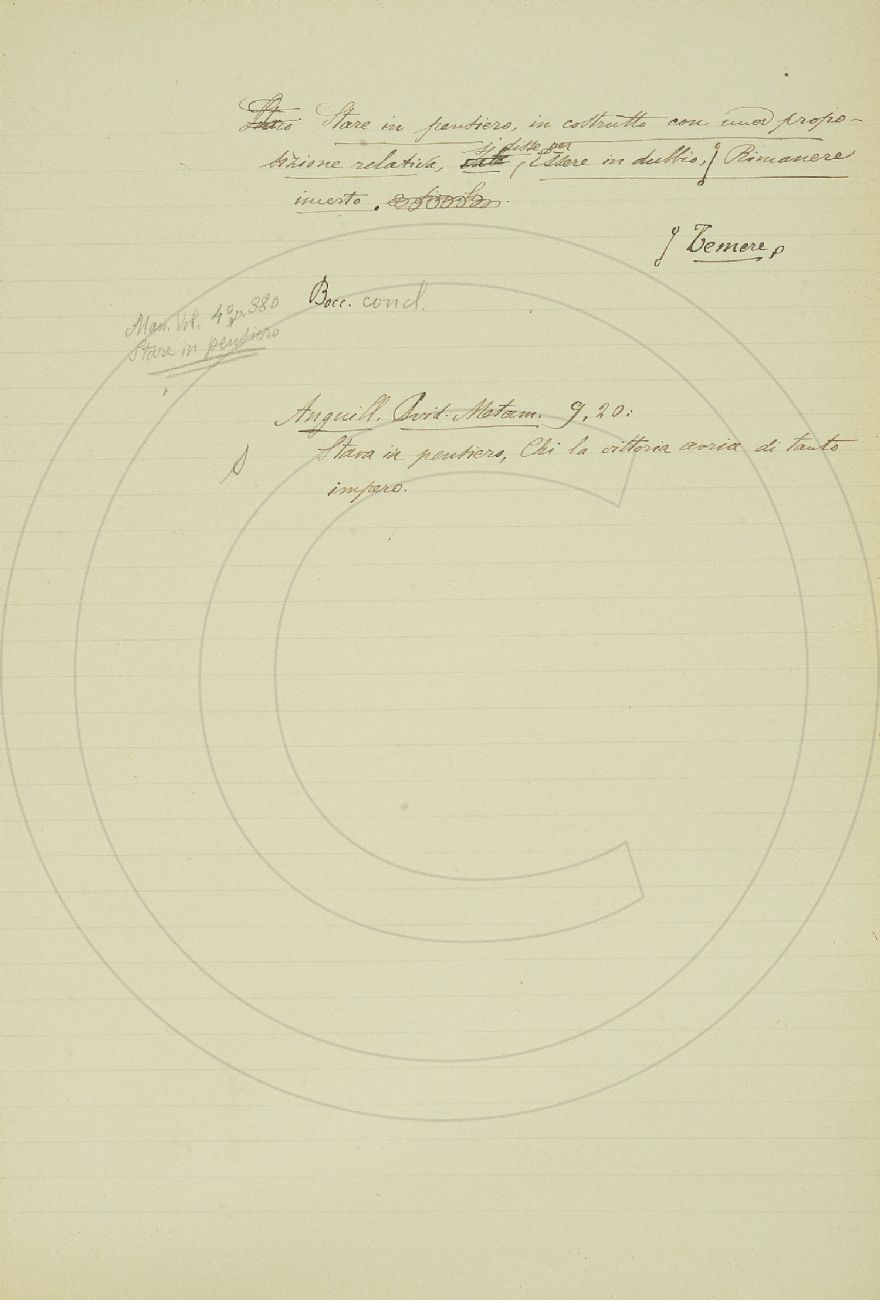 Stare in pensiero, in costrutto con una propo-
si disse per
sizione relativa, Essere in dubbio, Rimanere
incerto.
Temere,
Bocc. concl.
Man. Vol. 4º p. 380
Stare in pensiero
Anguill. Ovid. Metam. 9, 20:
Stava in pensiero, Chi la vittoria avria di tanto
impero.